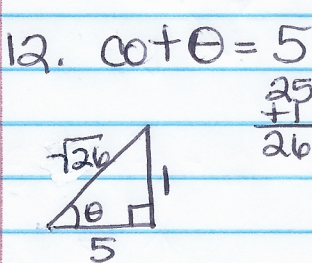 12. cot θ = 5
25
+1
26
√26
θ
1
5